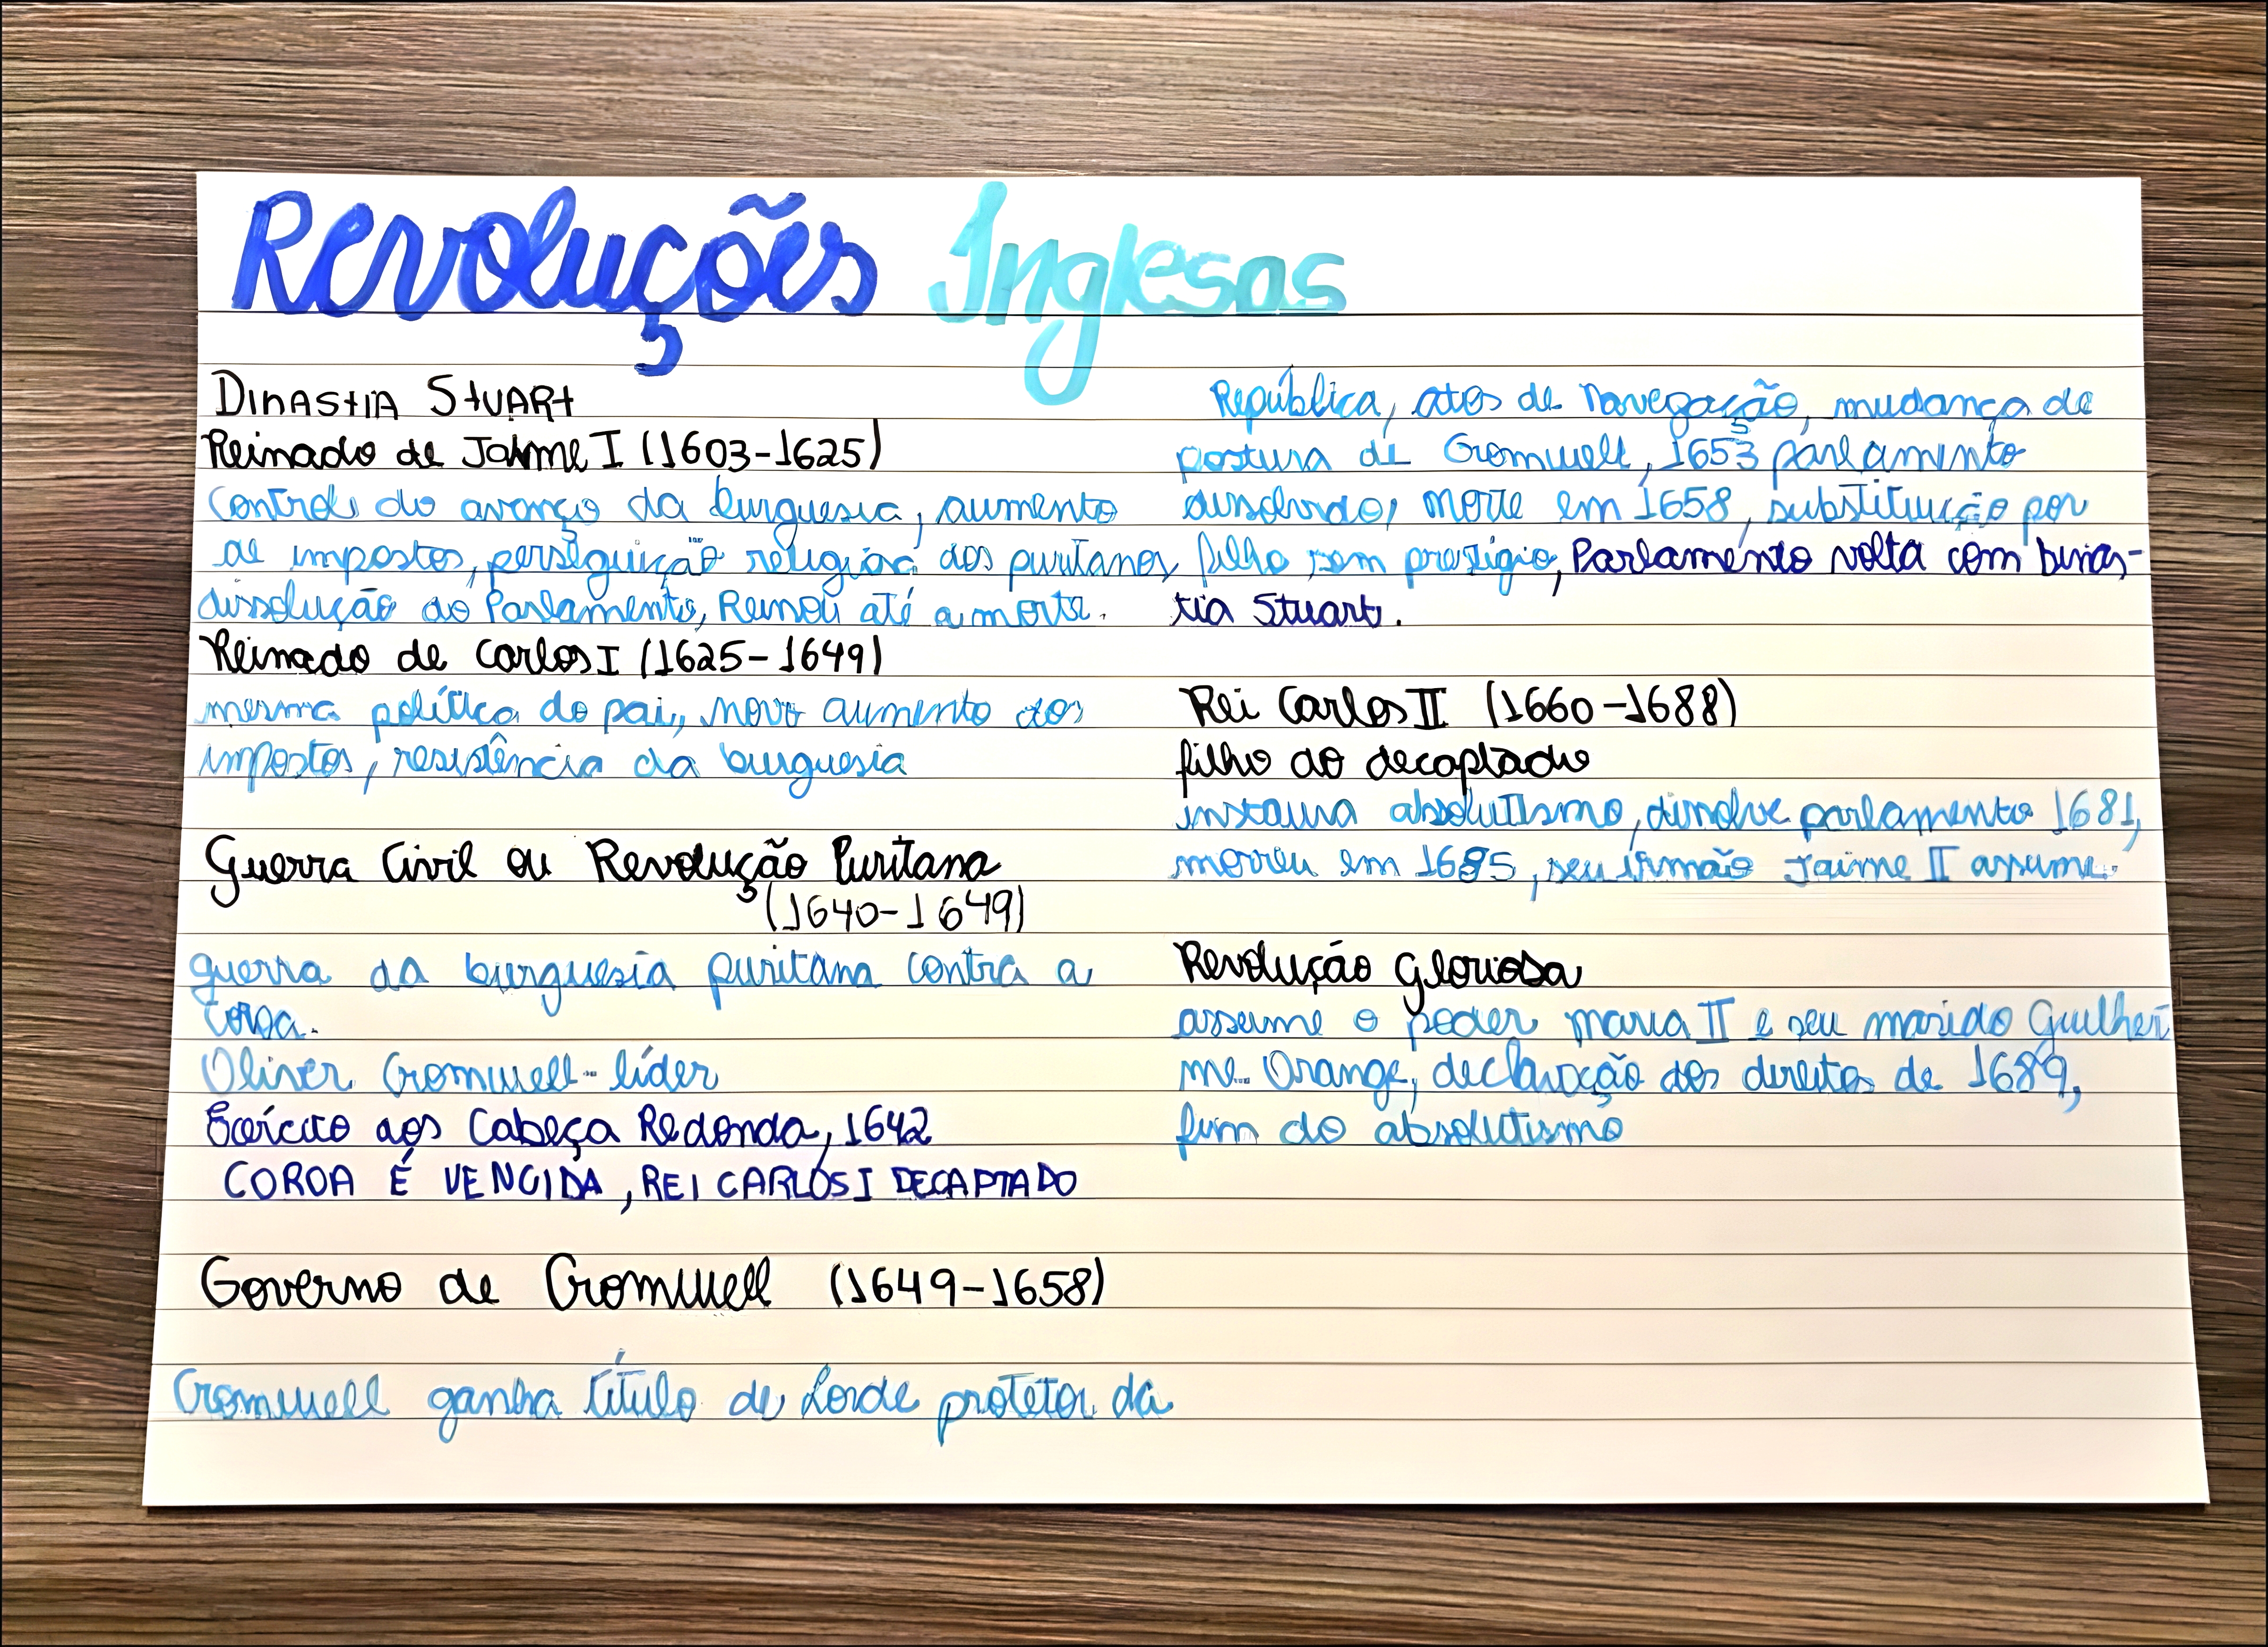 Revoluções Inglesas
Dinastia Stuart
Reinado de Jaime I (1603-1625)
Controle do avanço da burguesia, aumento
de impostos, perseguição religiosa aos puritanos,
dissolução do Parlamento, Reinou até a morte.
Reinado de Carlos I (1625-1649)
mesma política do pai, novo aumento dos
impostos, resistência da burguesia
Guerra Civil ou Revolução Puritana
(1640-1649)
guerra da burguesia puritana contra a
Coroa.
Oliver Cromwell - líder
Exército dos Cabeça Redonda, 1642
COROA É VENCIDA, REI CARLOS I DECAPTADO
Governo de Cromwell (1649-1658)
Cromwell ganha título de Lorde protetor da
República, atos de Navegação, mudança de
postura de Cromwell, 1653 parlamento
dissolvido, morre em 1658, substituição por
filho sem prestígio, Parlamento volta com Dinas-
tia Stuart.
Rei Carlos II (1660-1688)
filho do decaptado
instaura absolutismo, dissolve parlamento 1681,
morreu em 1685, seu irmão Jaime II assume.
Revolução Gloriosa
assume o poder Maria II e seu marido Guilher
me Orange, declaração dos direitos de 1689,
fim do absolutismo